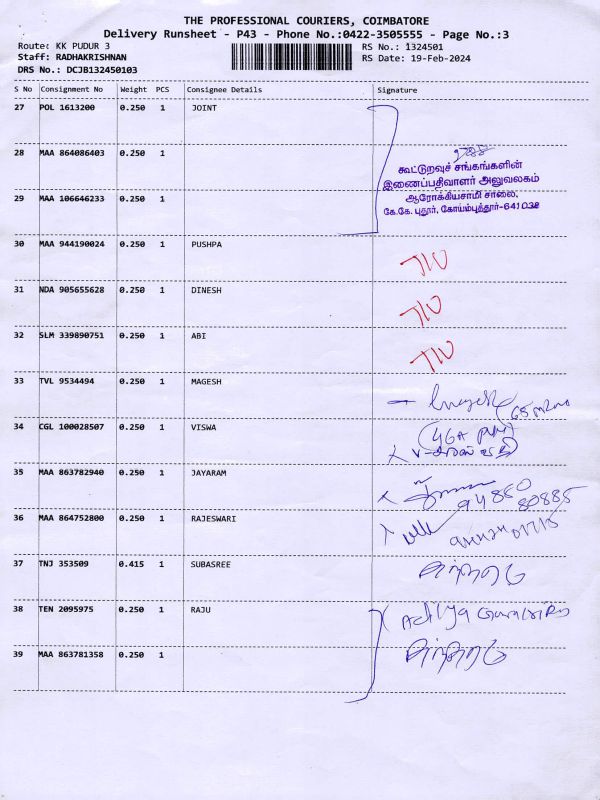 THE PROFESSIONAL COURIERS, COIMBATORE
Delivery Runsheet - P43 - Phone No.:0422-3505555 - Page No.:3
Route: KK PUDUR 3
RS No.: 1324501
Staff: RADHAKRISHNAN
RS Date: 19-Feb-2024
DRS No.: DCJB132450103
S No Consignment No Weight PCS Consignee Details Signature
27 POL 1613200 0.250 1 JOINT
28 MAA 864086403 0.250 1
கூட்டுறவுச் சங்கங்களின்
இணைப்பதிவாளர் அலுவலகம்
29 MAA 106646233 0.250 1
ஆரோக்கியசாமி சாலை,
கே.கே. புதூர், கோயம்புத்தூர்-641 038
30 MAA 944190024 0.250 1 PUSHPA
31 NDA 905655628 0.250 1 DINESH
32 SLM 339890751 0.250 1 ABI
33 TVL 9534494 0.250 1 MAGESH
34 CGL 100028507 0.250 1 VISWA
35 MAA 863782940 0.250 1 JAYARAM
94880
80885
36 MAA 864752800 0.250 1 RAJESWARI
37 TNJ 353509 0.415 1 SUBASREE
38 TEN 2095975 0.250 1 RAJU
Aditya
39 MAA 863781358 0.250 1